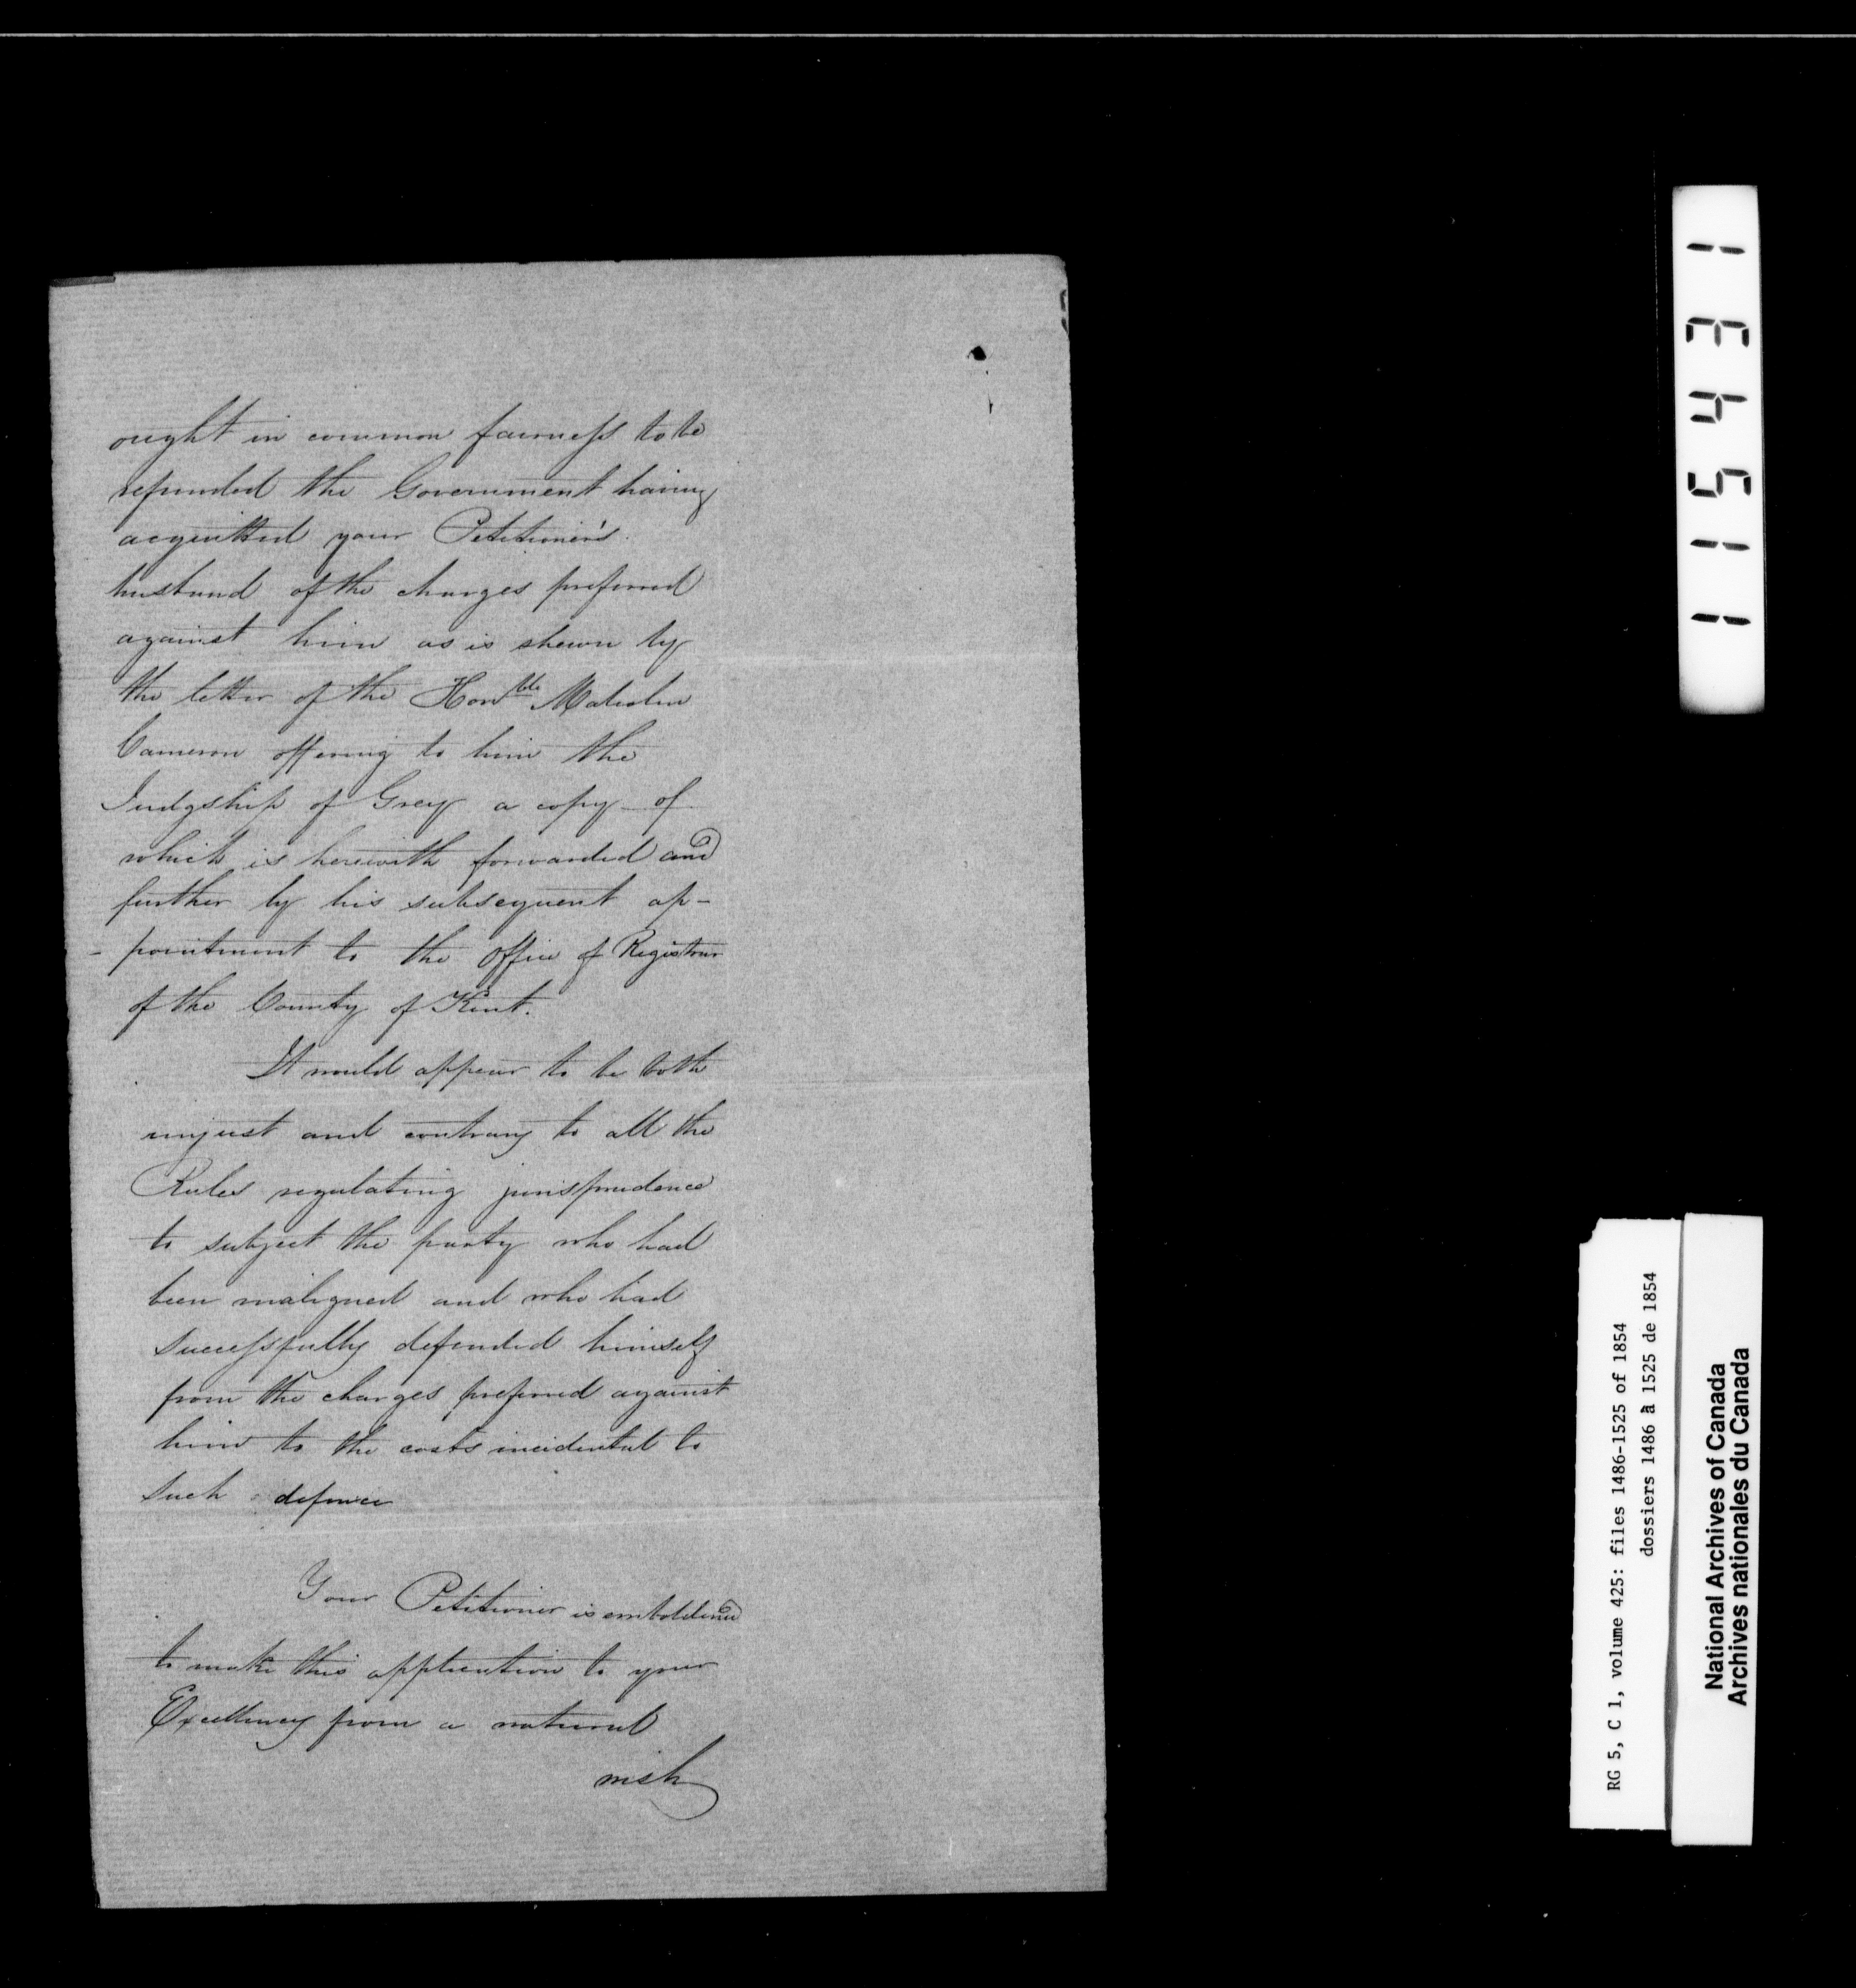 ought in common fairness to be
refunded the Government having
acquitted your Petitioner's
husband of the charges preferred
against him as is shewn by
the letter of the Honble Malcolm
Cameron offering to him the
Judgship of Grey a copy of
which is herewith forwarded and
further by his subsequent ap-
- pointment to the office of Registrar
of the County of Kent.
It would appear to be both
unjust and contrary to all the
Rules regulating jurisprudence
to subject the party who had
been maligned and who had
successfully defended himself
from the charges preferred against
him to the costs incidental to
such defence
Your Petitioner is emboldened
to make this application to your
Excellency from a natural
wish
115431
RG 5, C 1, volume 425: files 1486-1525 of 1854
dossiers 1486 à 1525 de 1854
National Archives of Canada
Archives nationales du Canada